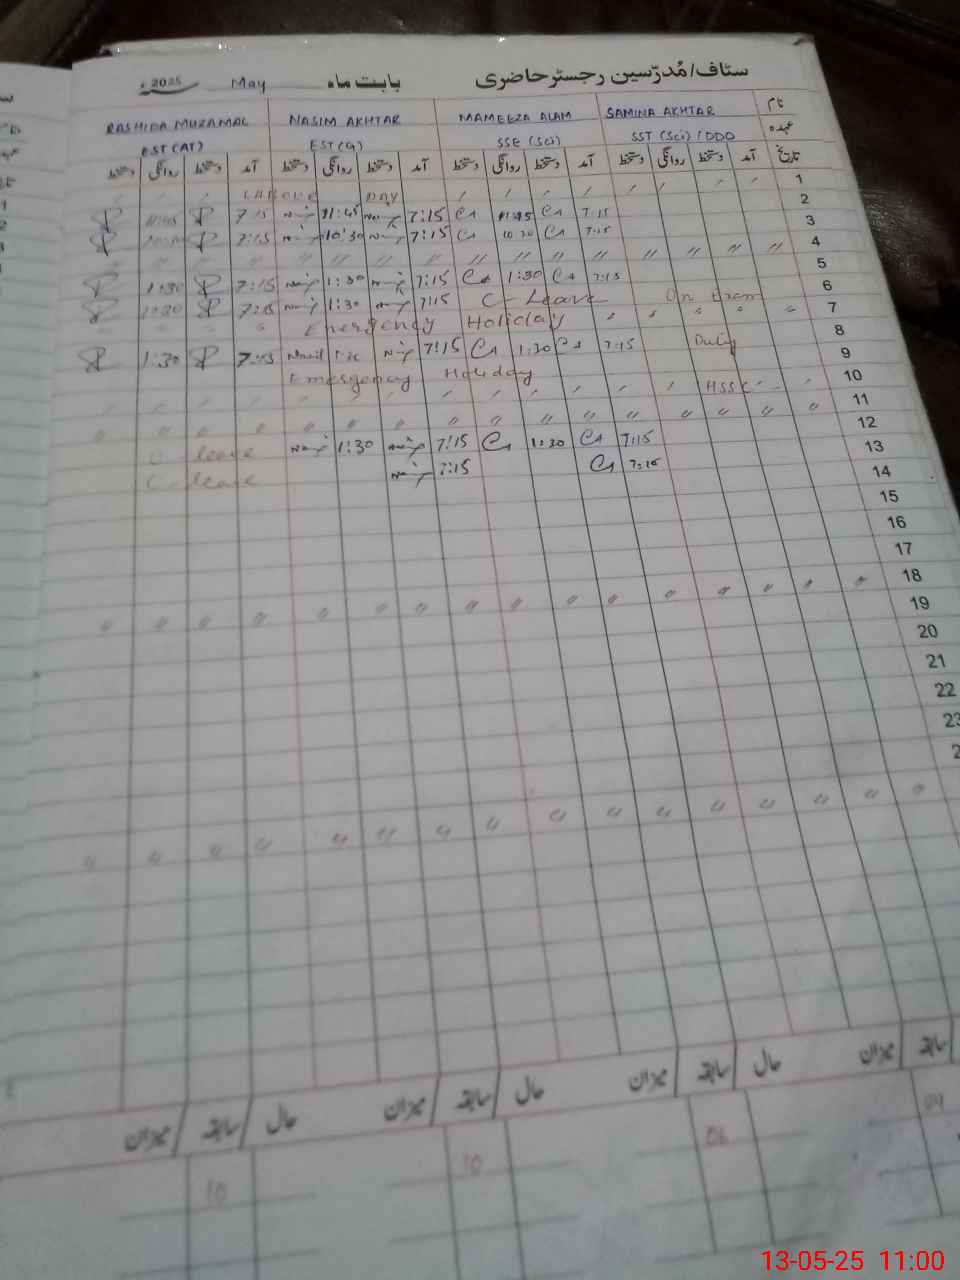 سٹاف/مُدرّسین رجسٹر حاضری بابت ماہ May 2025ء
نام SAMINA AKHTAR MAMEEZA ALAM NASIM AKHTAR RASHIDA MUZAMAL
عہدہ SST (Sci) / DDO SSE (Sci) EST (G) EST (AT)
تاریخ آمد دستخط روانگی دستخط آمد دستخط روانگی دستخط آمد دستخط روانگی دستخط آمد دستخط روانگی دستخط
1 〃 〃 〃 〃 〃 〃 〃 〃 LABOUR DAY 〃 〃 〃
2 7:15 11:45 7:15 11:45 7:15 11:45
3 7:15 10:30 7:15 10:30 7:15
4 〃 〃 〃 〃 〃 〃 〃 〃 〃 〃 〃 〃 〃 〃 〃 〃
5 7:15 1:30 7:15 1:30 7:15 1:30
6 On Exam C-Leave 7:15 1:30 7:15 1:30
7 〃 〃 〃 〃 〃 Emergency Holiday 〃
8 Duty 7:15 1:30 7:15 7:15 1:30
9 Emergency Holiday
10 HSSC 〃 〃 〃 〃 〃 〃 〃 〃 〃 〃 〃
11 〃 〃 〃 〃 〃 〃 〃 〃 〃 〃 〃 〃 〃 〃 〃 〃
12 7:15 1:30 7:15 1:30 C-leave
13 7:15 7:15 C-leave
14
15
16
17
18 〃 〃 〃 〃 〃 〃 〃 〃 〃 〃 〃 〃 〃 〃 〃 〃
19
20
21
22
23
〃 〃 〃 〃 〃 〃 〃 〃 〃 〃 〃 〃 〃 〃 〃 〃
سابقہ میزان حال سابقہ میزان حال سابقہ میزان حال سابقہ میزان
04 06 10 10
13-05-25 11:00